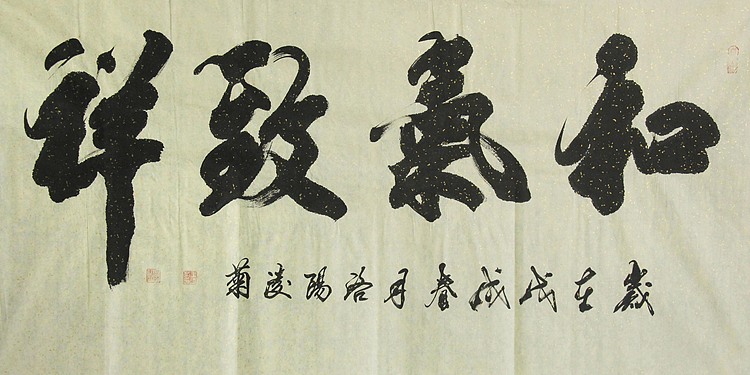 和氣致祥
歲在戊戌春月洛陽凌菊